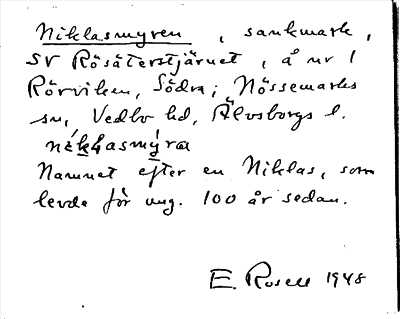 Niklasmyren, sankmark,
SV Rösäterstjärnet, å nr 1
Rörviken, Södra; Nössemarks
sn, Vedbo hd, Älvsborgs l.
Namnet efter en Niklas, som
levde för ung. 100 år sedan.
E. Rosell 1948